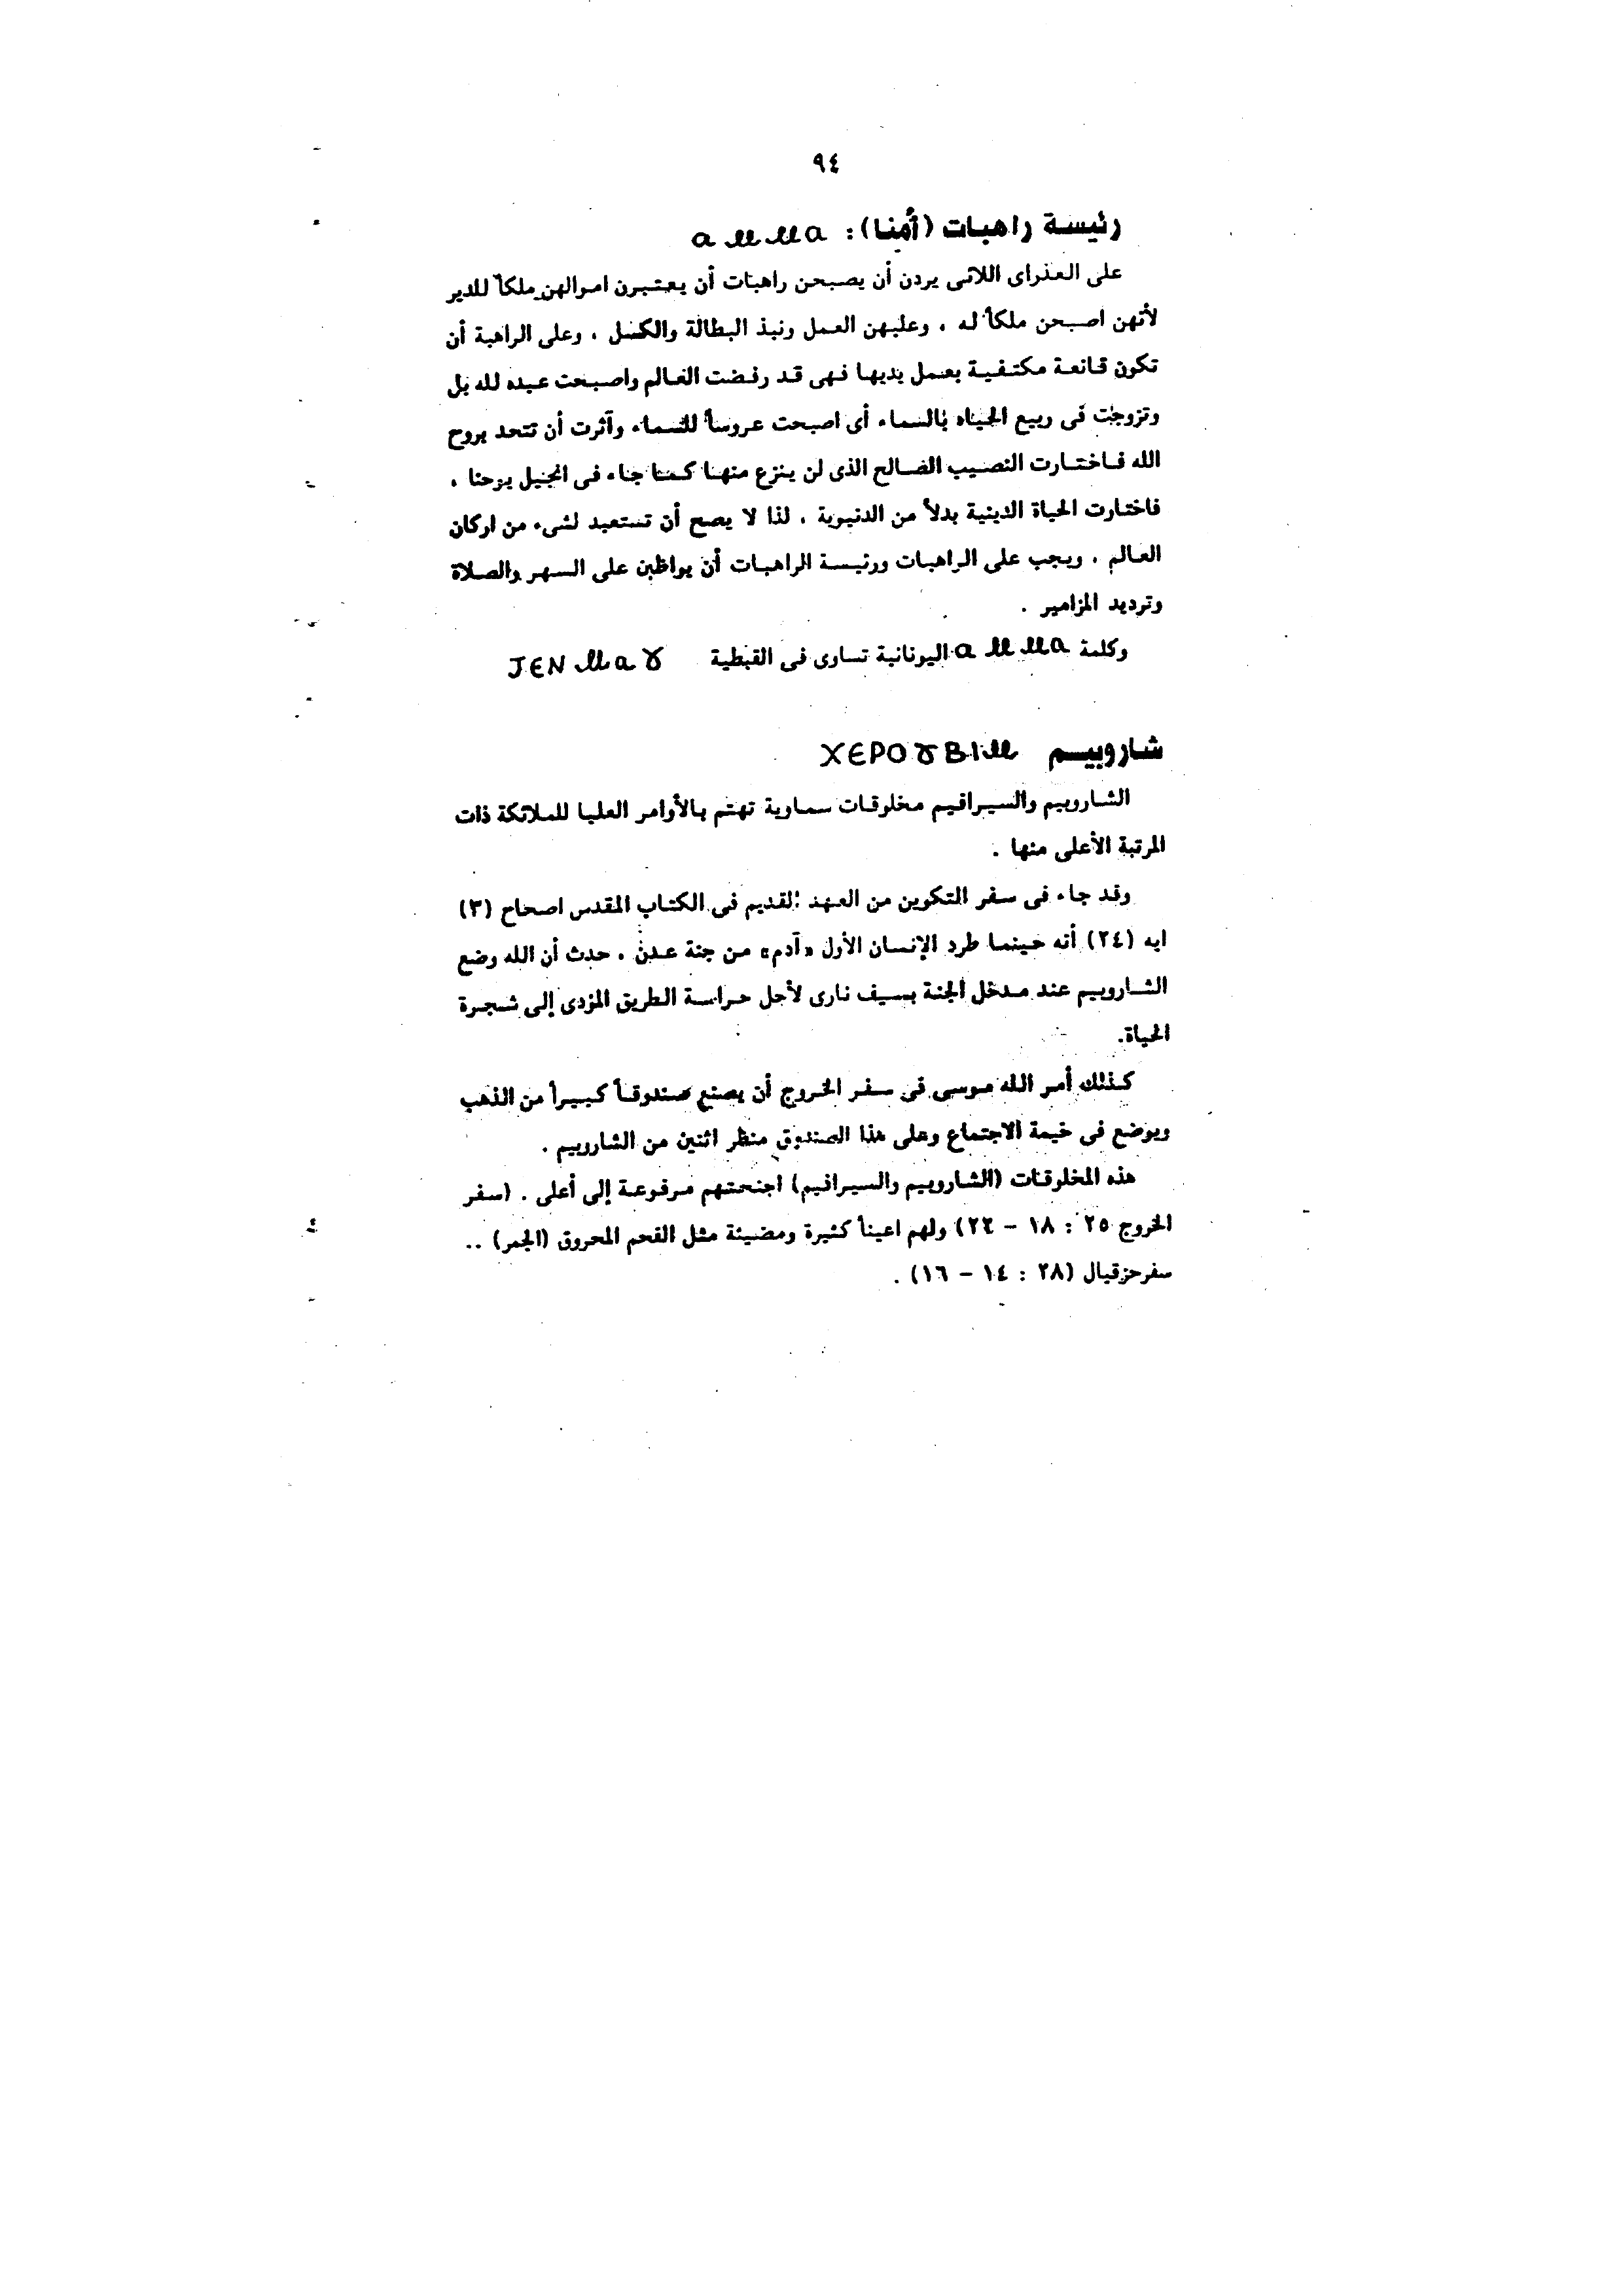 ٩٤
رئيسة راهبات (أمنا) : ⲁⲙⲙⲁ
على العذراى اللاتى يردن أن يصبحن راهبات أن يعتبرن اموالهن ملكاً للدير
لأنهن اصبحن ملكاً له ، وعليهن العمل ونبذ البطالة والكسل ، وعلى الراهبة أن
تكون قانعة مكتفية بعمل يديها فهى قد رفضت العالم واصبحت عبده لله بل
وتزوجت فى ربيع الحياه بالسماء أى اصبحت عروساً للسماء وآثرت أن تتحد بروح
الله فاختارت النصيب الصالح الذى لن ينزع منها كما جاء فى انجيل يوحنا ،
فاختارت الحياة الدينية بدلاً من الدنيوية ، لذا لا يصح أن تستعبد لشىء من اركان
العالم ، ويجب على الراهبات ورئيسة الراهبات أن يواظبن على السهر والصلاة
وترديد المزامير .
وكلمة ⲁⲙⲙⲁ اليونانية تساوى فى القبطية ⲧⲉⲛⲙⲁⲩ
شاروبيم ⲭⲉⲣⲟⲩⲃⲓⲙ
الشاروبيم والسيرافيم مخلوقات سماوية تهتم بالأوامر العليا للملائكة ذات
المرتبة الأعلى منها .
وقد جاء فى سفر التكوين من العهد القديم فى الكتاب المقدس اصحاح (٣)
ايه (٢٤) أنه حينما طرد الإنسان الأول «آدم» من جنة عدن ، حدث أن الله وضع
الشاروبيم عند مدخل الجنة بسيف نارى لأجل حراسة الطريق المؤدى إلى شجرة
الحياة.
كذلك أمر الله موسى فى سفر الخروج أن يصنع صندوقاً كبيراً من الذهب
ويوضع فى خيمة الاجتماع وعلى هذا الصندوق منظر اثنين من الشاروبيم .
هذه المخلوقات (الشاروبيم والسيرافيم) اجنحتهم مرفوعة إلى أعلى . (سفر
الخروج ٢٥ : ١٨ - ٢٢) ولهم اعيناً كثيرة ومضيئة مثل الفحم المحروق (الجمر) ..
سفرحزقيال (٢٨ : ١٤ - ١٦) .